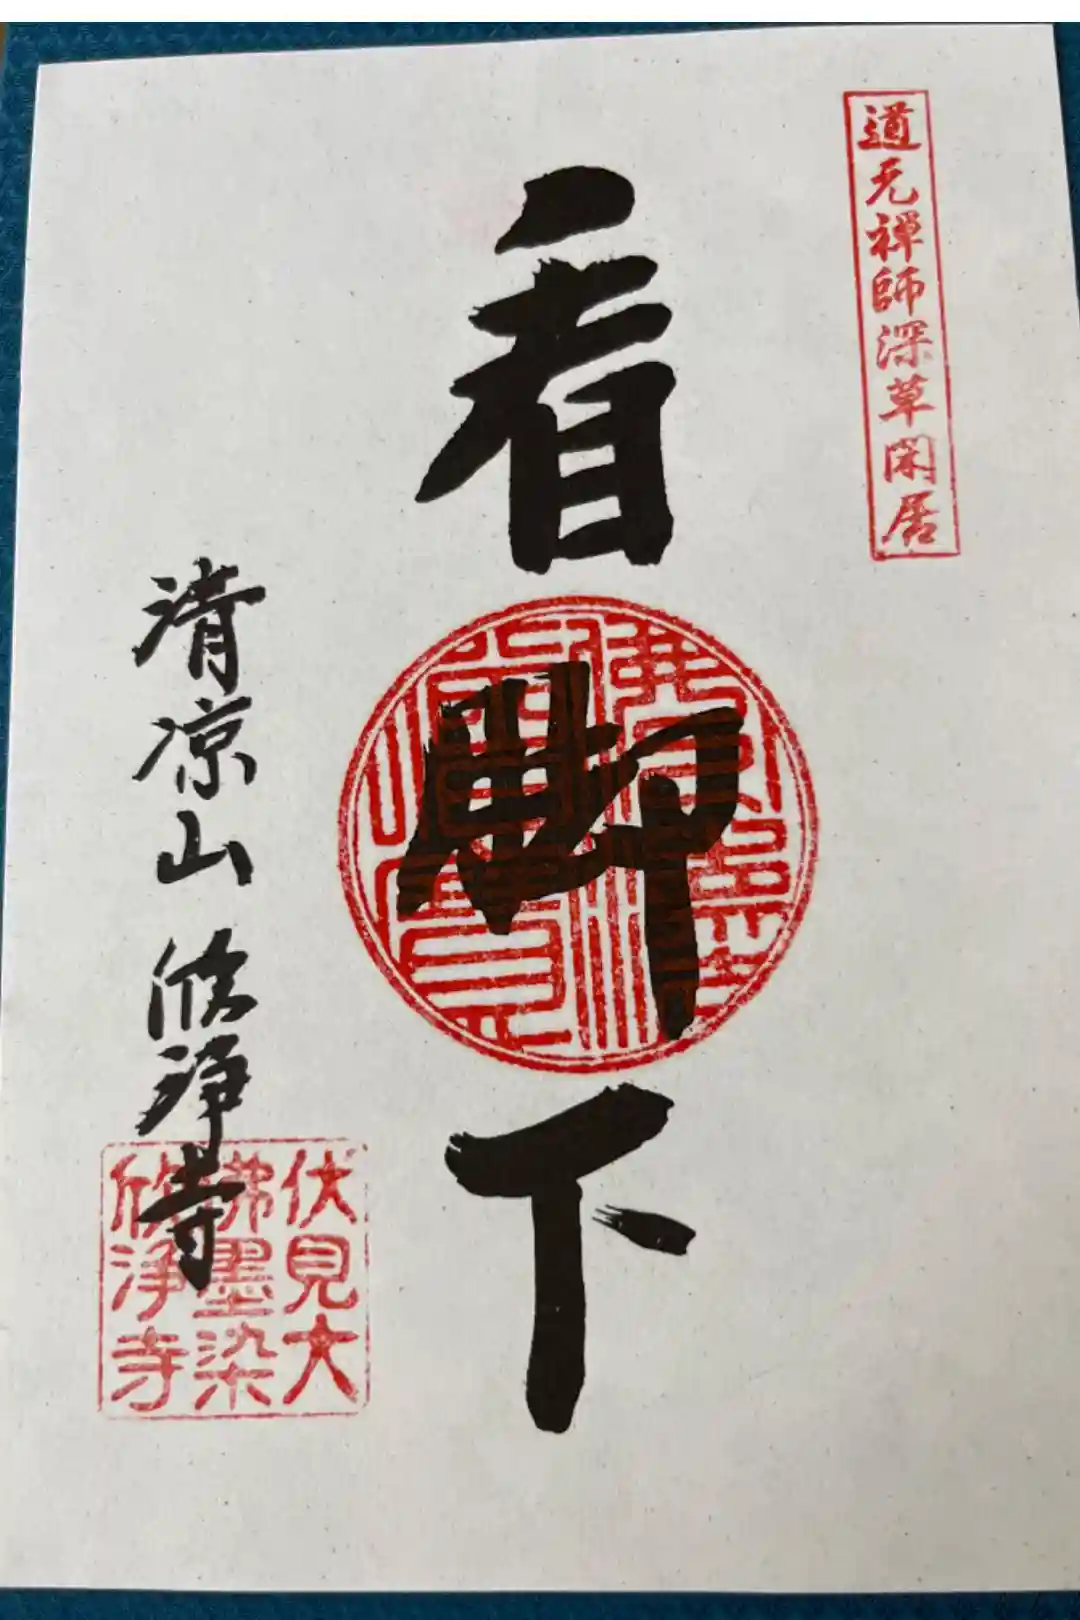 道元禅師深草閑居
看脚下
清凉山 欣浄寺
伏見大
佛墨染
欣浄寺